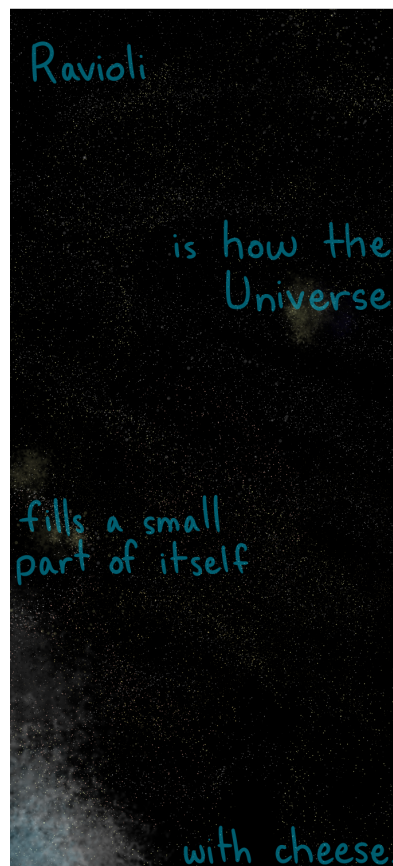 Ravioli
is how the
Universe
fills a small
part of itself
with cheese